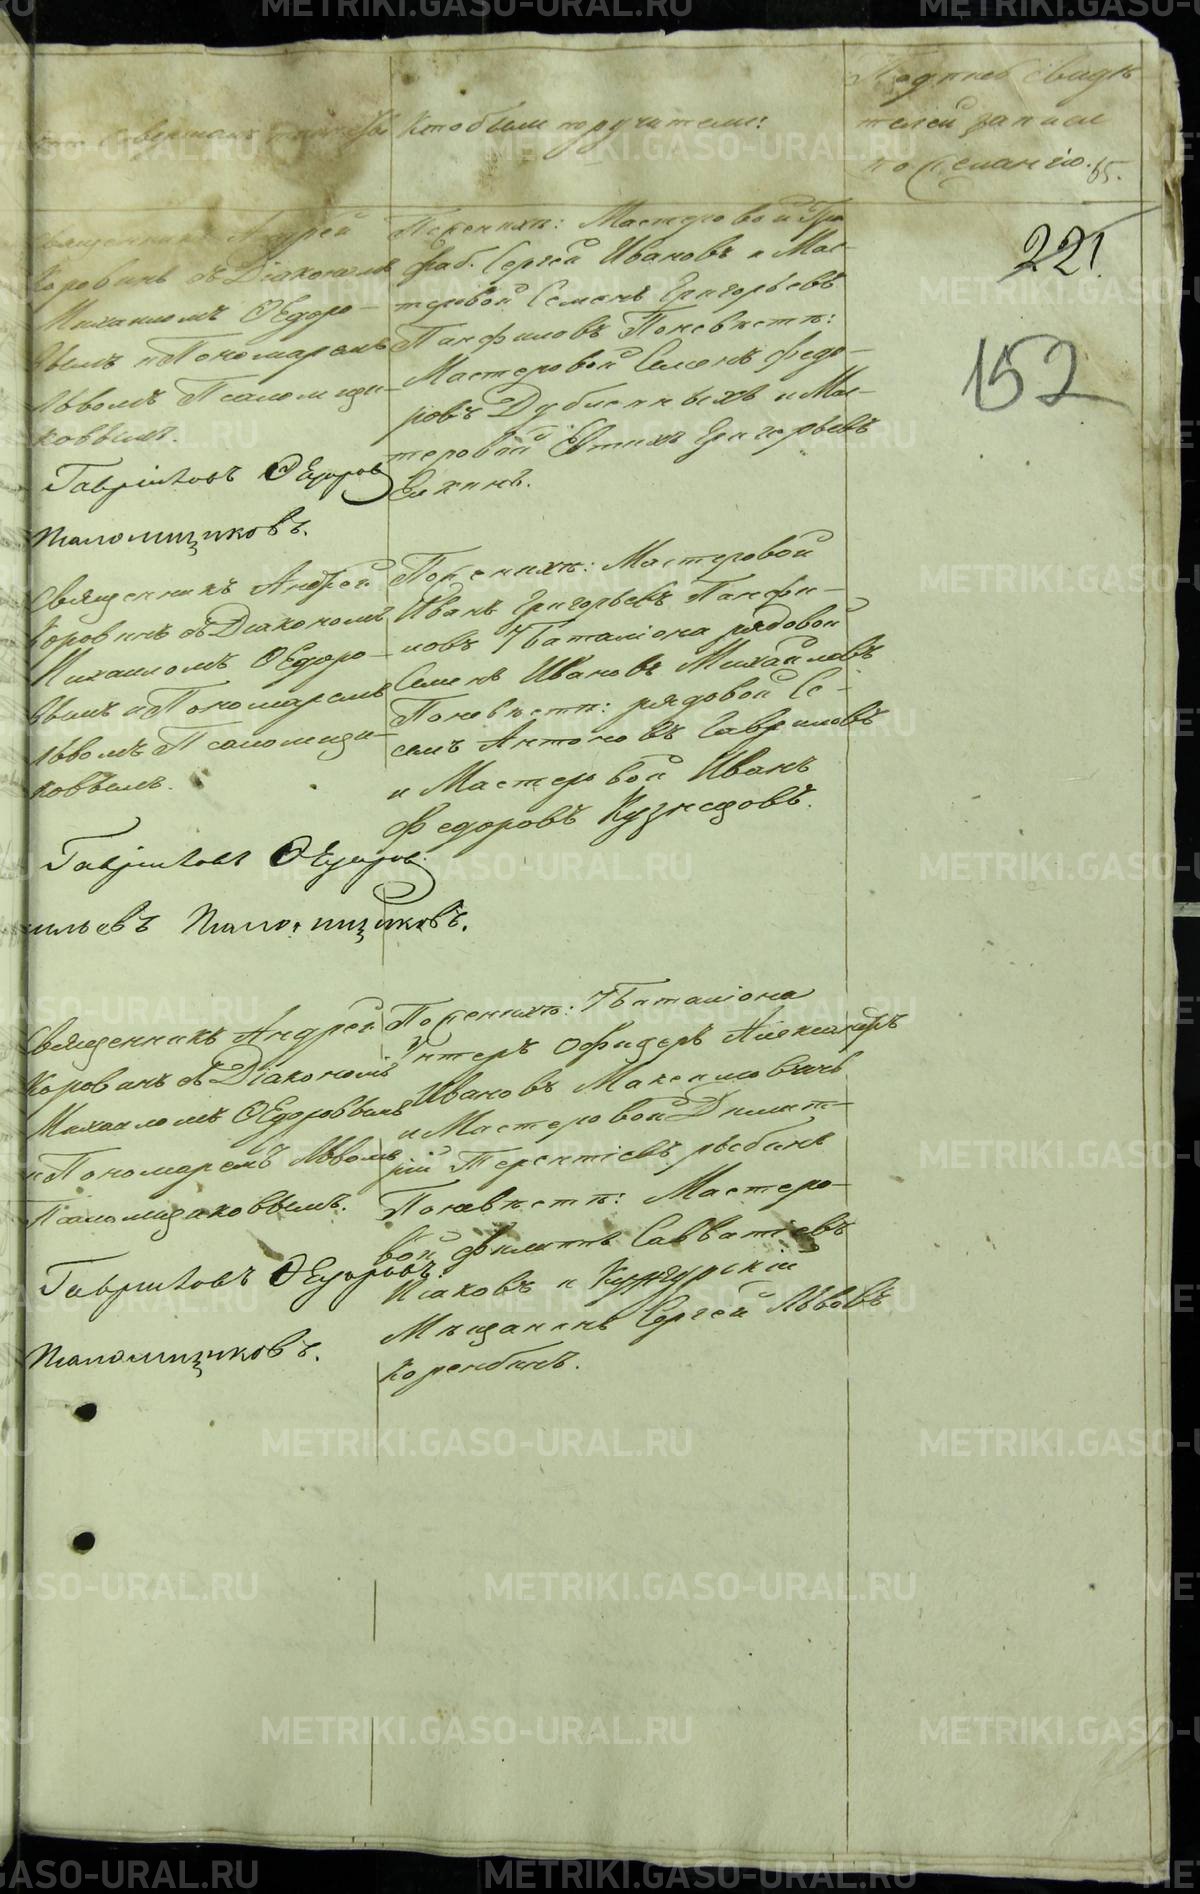 Кто были поручители:
Подпись свидѣ
телей записи
по желанію. 65.
221.
152
Священникъ Андрей
Коровинъ съ Діакономъ
Михаиломъ Ѳедоро-
вымъ и Пономаремъ
Львомъ Псаломщи-
ковымъ.
Гавриловъ Ѳедоров
Псаломщиковъ.
По женихѣ: Мастеровой
фаб. Сергей Ивановъ и Мас-
теровой Семенъ Григорьевъ
Панфиловъ По невѣстѣ:
Мастеровой Семенъ Федо-
ровъ Дубленныхъ и Мас-
теровой Григорьевъ
Священникъ Андрей
Коровинъ съ Діакономъ
Михаиломъ Ѳедоро-
вымъ и Пономаремъ
Львомъ Псаломщи-
ковымъ.
Гавриловъ Ѳедоров.
Псаломщиковъ.
По женихѣ: Мастеровой
Иванъ Григорьевъ Панфи-
ловъ 7 Баталіона рядовой
Семенъ Ивановъ Михайловъ
По невѣстѣ: рядовой
Антоновъ Гавриловъ
и Мастеровой Иванъ
Федоровъ Кузнецовъ.
Священникъ Андрей
Коровинъ съ Діакономъ
Михаиломъ Ѳедоровымъ
и Пономаремъ Львомъ
Псаломщиковымъ.
Гавриловъ Ѳедоровъ.
Псаломщиковъ.
По женихѣ: 7 Баталіона
Унтеръ офицеръ Александръ
Ивановъ Максимовичъ
и Мастеровой Димит-
рій Терентіевъ рыбинъ
По невѣстѣ: Мастеро-
вой Филиппъ Савватіевъ
Исаковъ и Кунгурскій
Мѣщанинъ Сергей Львовъ